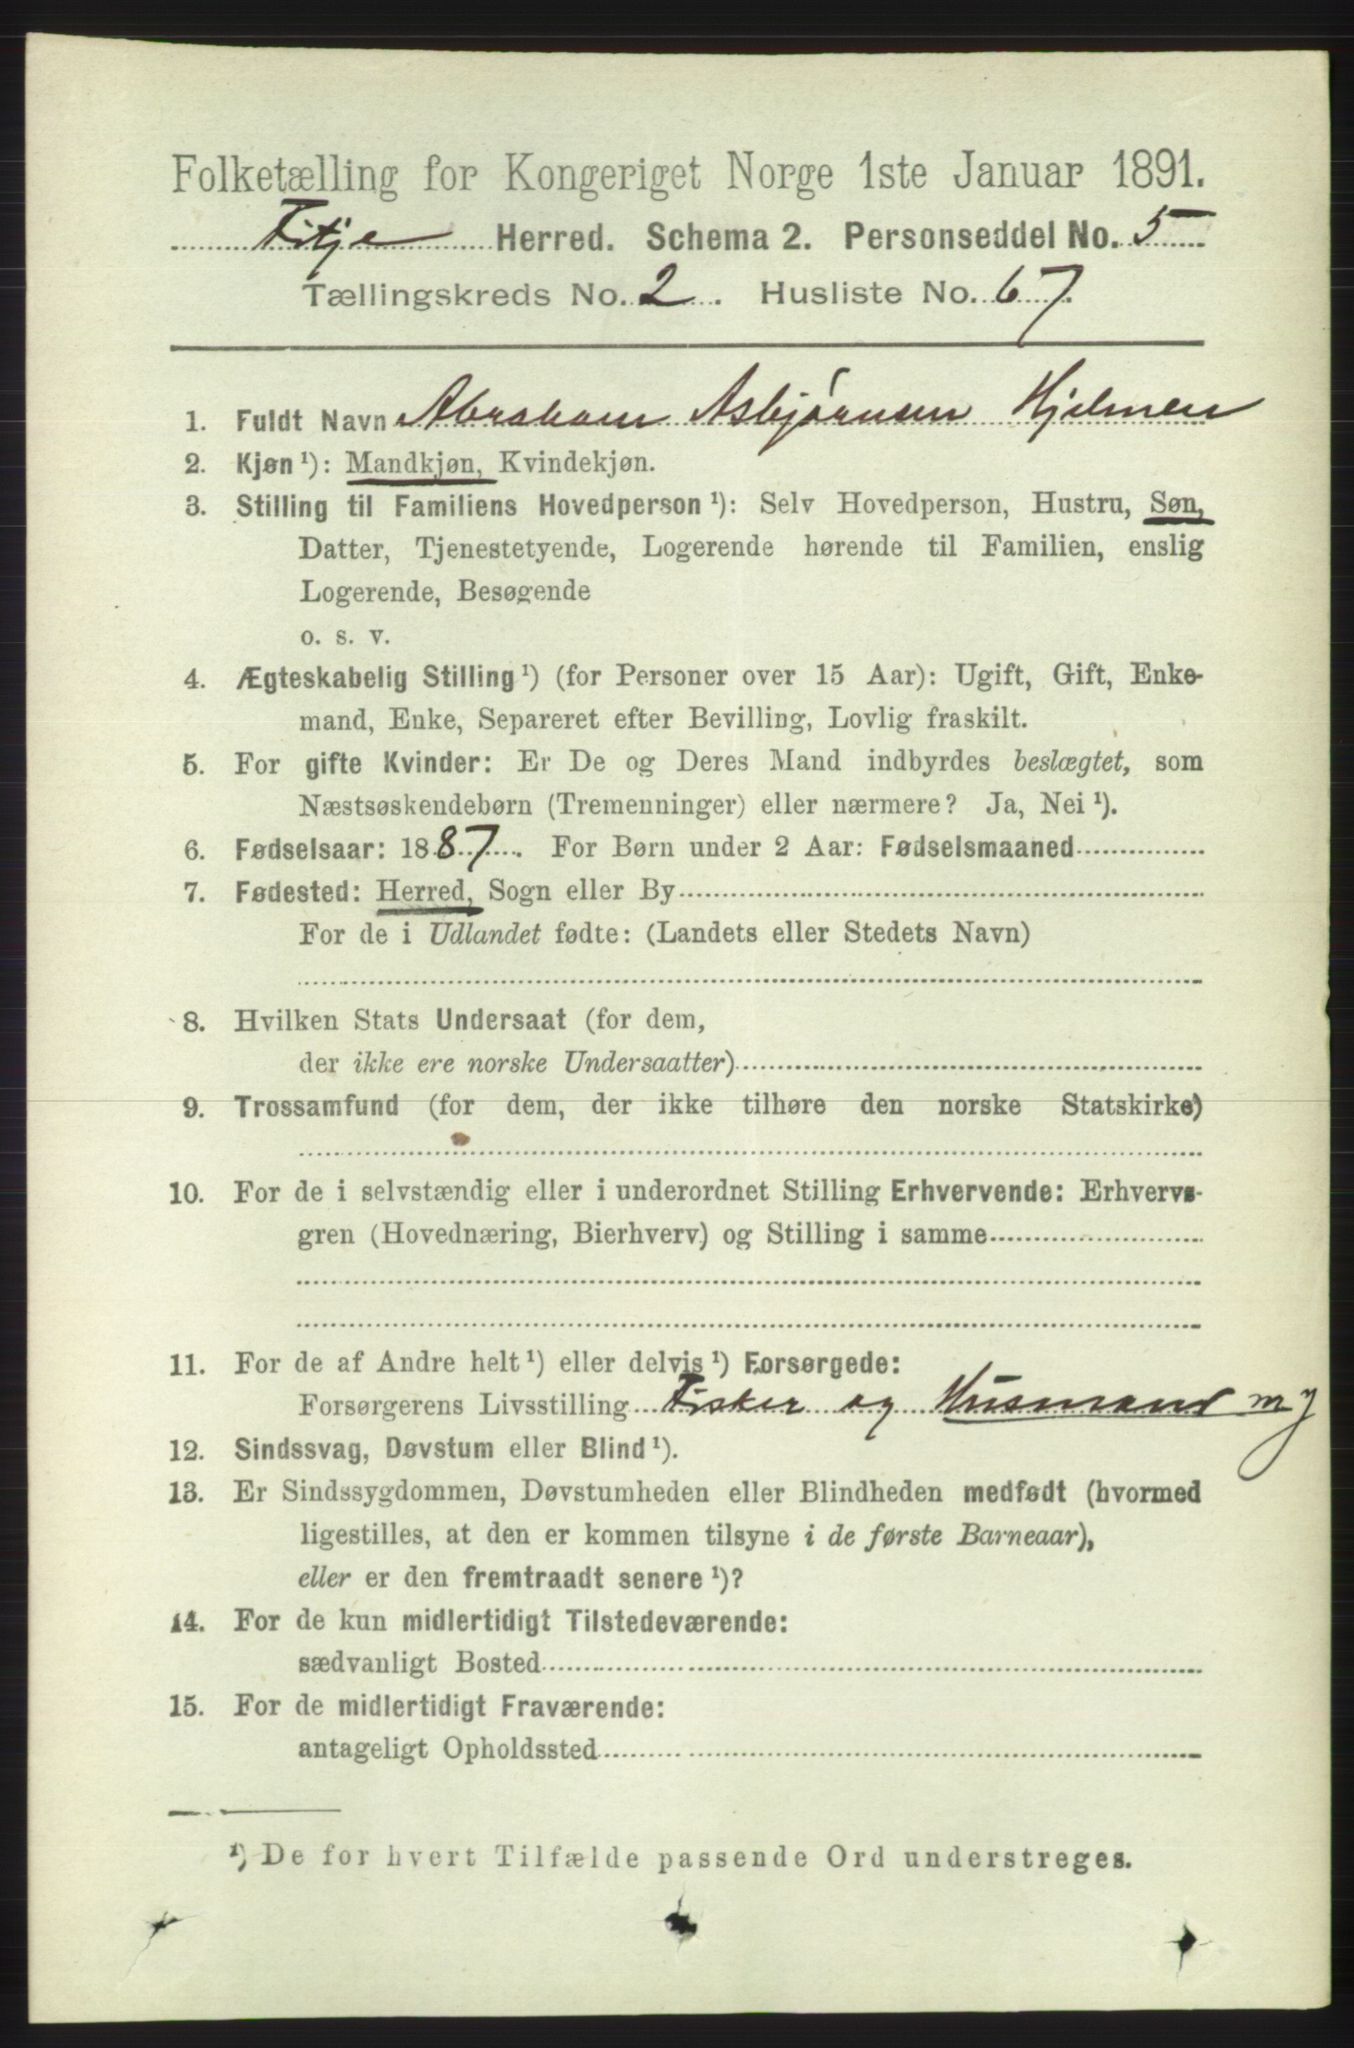 Folketælling for Kongeriget Norge 1ste Januar 1891.
Fitje Herred. Schema 2. Personseddel No. 5
Tællingskreds No. 2. Husliste No. 67.
1. Fuldt Navn Abraham Asbjørnsen Hjelmen
2. Kjøn ¹): Mandkjøn, Kvindekjøn.
3. Stilling til Familiens Hovedperson ¹): Selv Hovedperson, Hustru, Søn,
Datter, Tjenestetyende, Logerende hørende til Familien, enslig
Logerende, Besøgende
o. s. v.
4. Ægteskabelig Stilling ¹) (for Personer over 15 Aar): Ugift, Gift, Enke-
mand, Enke, Separeret efter Bevilling, Lovlig fraskilt.
5. For gifte Kvinder: Er De og Deres Mand indbyrdes beslægtet, som
Næstsøskendebørn (Tremenninger) eller nærmere? Ja, Nei ¹).
6. Fødselsaar: 1887. For Børn under 2 Aar: Fødselsmaaned
7. Fødested: Herred, Sogn eller By
For de i Udlandet fødte: (Landets eller Stedets Navn)
8. Hvilken Stats Undersaat (for dem,
der ikke ere norske Undersaatter)
9. Trossamfund (for dem, der ikke tilhøre den norske Statskirke)
10. For de i selvstændig eller i underordnet Stilling Erhvervende: Erhvervs-
gren (Hovednæring, Bierhverv) og Stilling i samme
11. For de af Andre helt ¹) eller delvis ¹) Forsørgede:
Forsørgerens Livsstilling Fisker og Husmand m j
12. Sindssvag, Døvstum eller Blind ¹).
13. Er Sindssygdommen, Døvstumheden eller Blindheden medfødt (hvormed
ligestilles, at den er kommen tilsyne i de første Barneaar),
eller er den fremtraadt senere ¹)?
14. For de kun midlertidigt Tilstedeværende:
sædvanligt Bosted
15. For de midlertidigt Fraværende:
antageligt Opholdssted
¹) De for hvert Tilfælde passende Ord understreges.